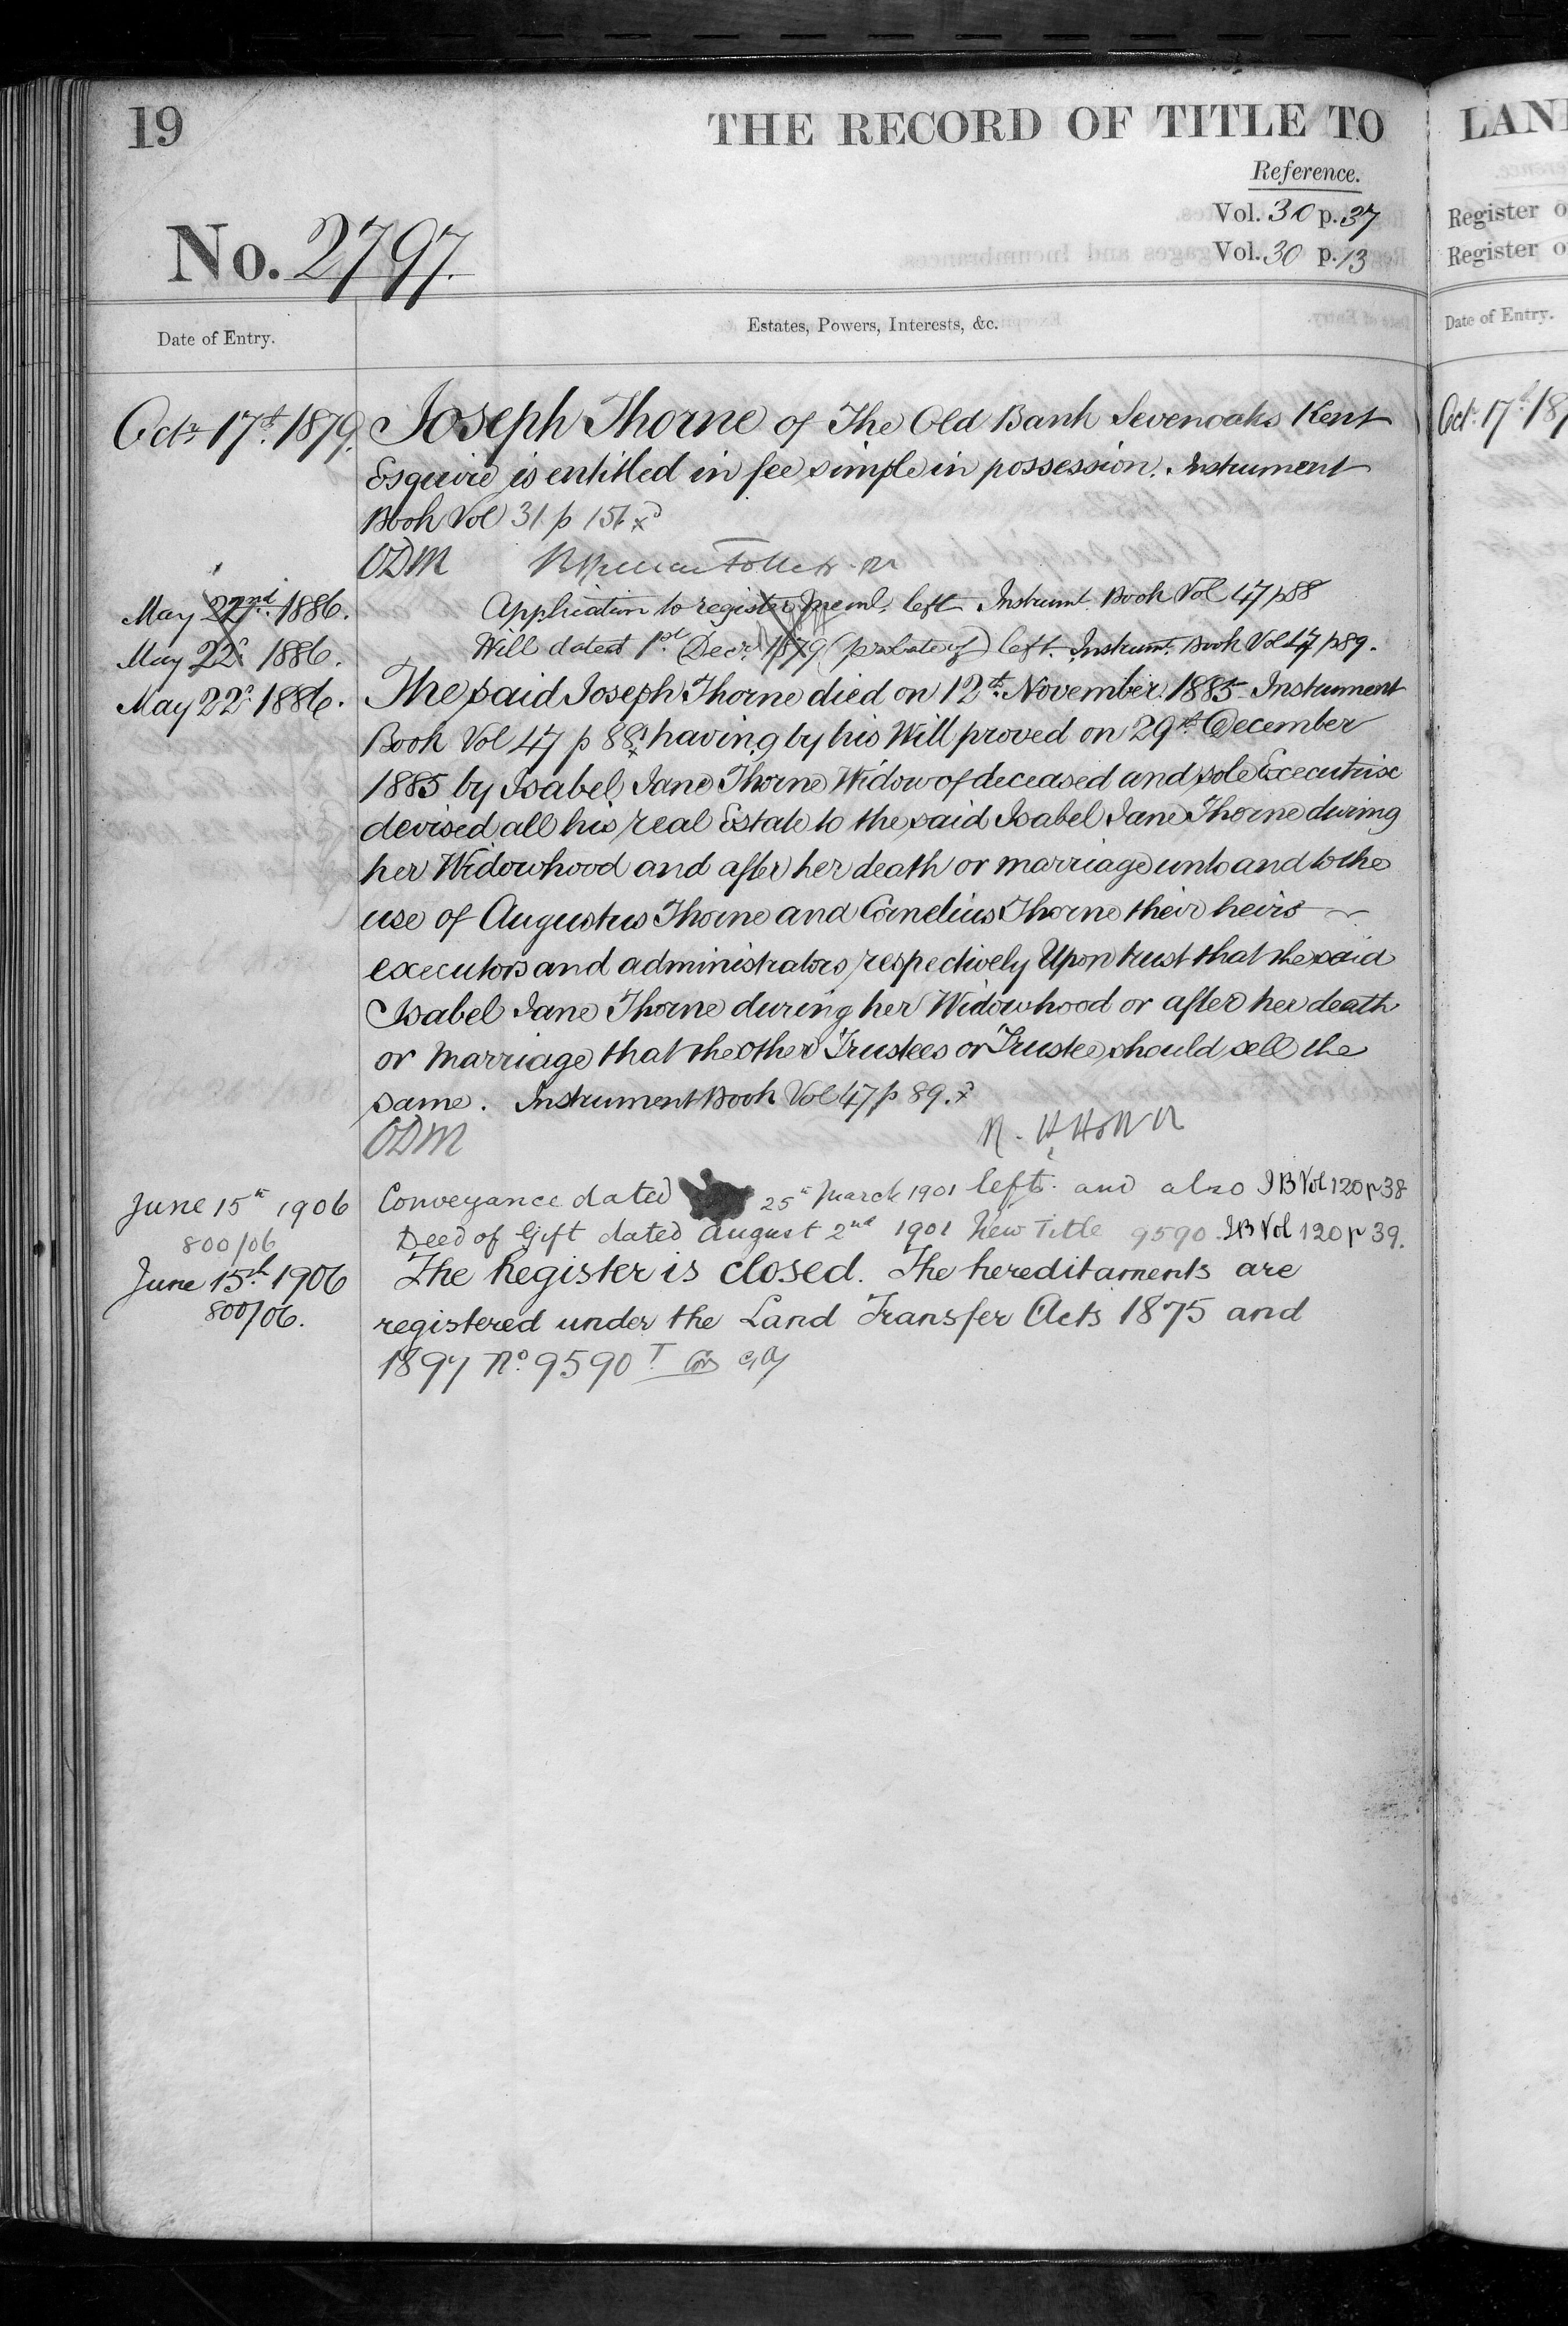 19
THE RECORD OF TITLE TO
Reference.
Vol. 30 p. 37
Vol. 30 p. 13
No. 2797.
Date of Entry.
Estates, Powers, Interests, &c.
Octr 17th 1879. Joseph Thorne of The Old Bank Sevenoaks Kent
Esquire is entitled in fee simple in possession. Instrument
Book Vol 31 p 151
ODM
May 22nd 1886. Application to register left Instrumt. Book Vol 47 p 88
May 22d 1886. Will dated 1st Decr. 1879 (probate of) left. Instrumt. Book Vol 47 p 89.
May 22d 1886. The said Joseph Thorne died on 12th November 1885 Instrument
Book Vol 47 p 88 having by his Will proved on 29th December
1885 by Isabel Jane Thorne Widow of deceased and sole Executrix
devised all his real Estate to the said Isabel Jane Thorne during
her Widowhood and after her death or marriage unto and to the
use of Augustus Thorne and Cornelius Thorne their heirs
executors and administrators respectively Upon trust that the said
Isabel Jane Thorne during her Widowhood or after her death
or marriage that the other Trustees or Trustee should sell the
same. Instrument Book Vol 47 p 89.
ODM
June 15th 1906 Conveyance dated 25th March 1901 left. and also IB Vol 120 p 38
800/06 Deed of Gift dated August 2nd 1901 New Title 9590. IB Vol 120 p 39.
June 15th 1906 The Register is closed. The hereditaments are
800/06. registered under the Land Transfer Acts 1875 and
1897 No. 9590
LAN
Register o
Register o
Date of Entry.
Oct. 17th 18